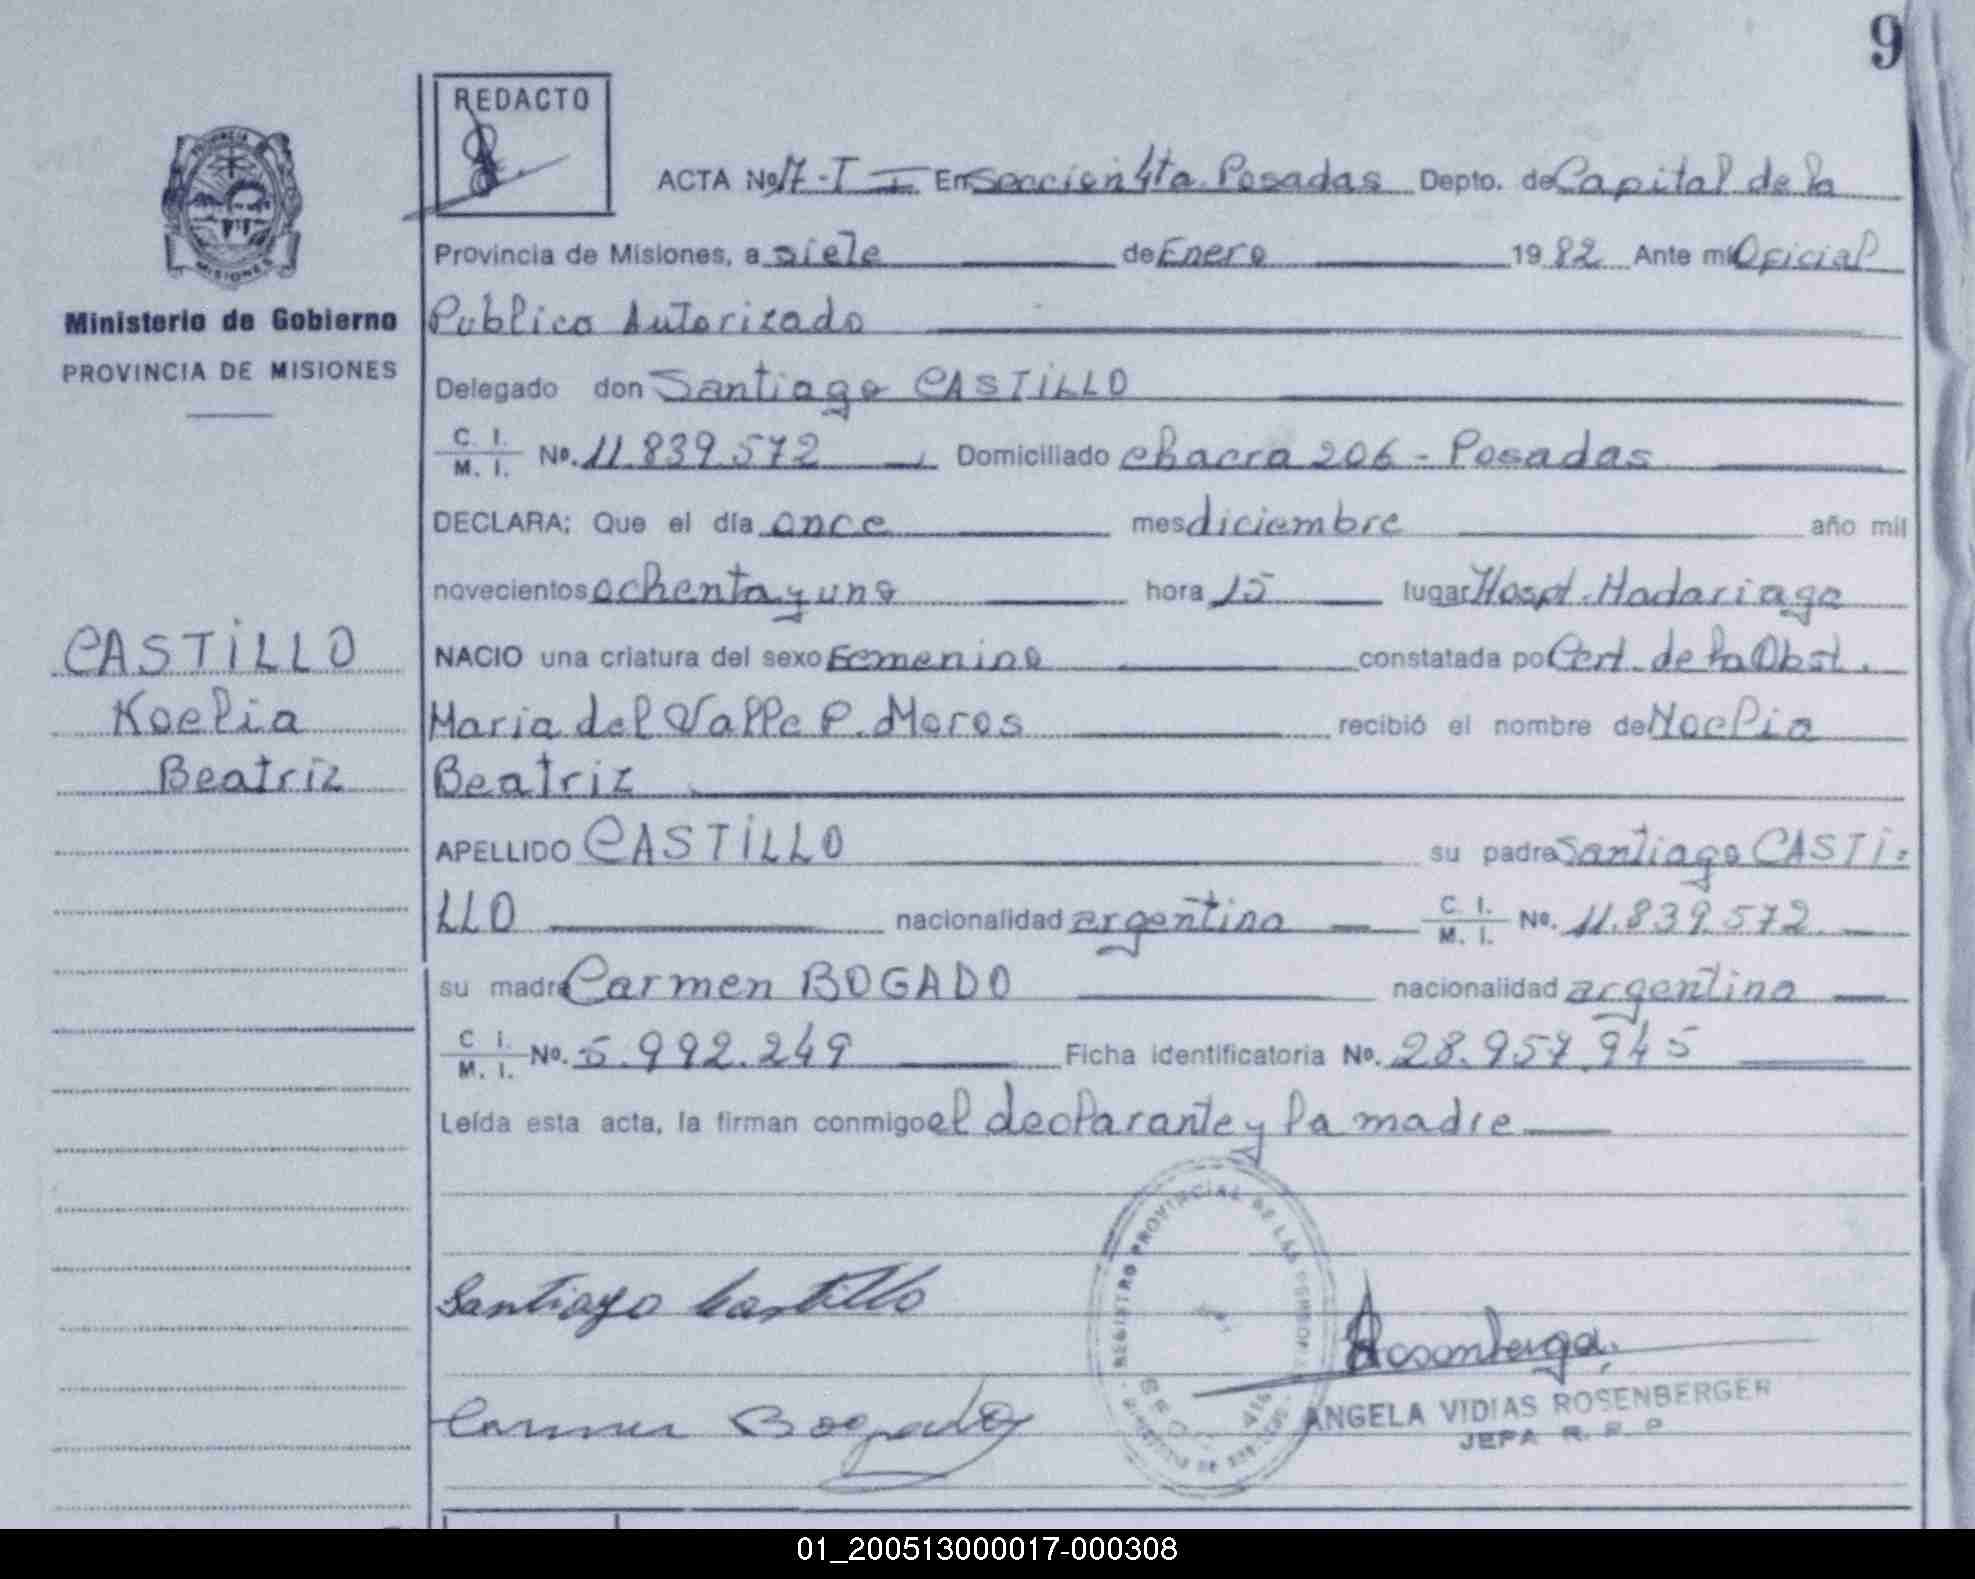 9
REDACTO
ACTA No 17-I En Seccion 4ta. Posadas Depto. de Capital de la
Provincia de Misiones, a siete de Enero 19 82 Ante mi Oficial
Ministerio de Gobierno
Publico Autorizado
PROVINCIA DE MISIONES
Delegado don Santiago CASTILLO
C. I. M. I. No. 11.839.572 Domiciliado chacra 206 - Posadas
DECLARA; Que el día once mes diciembre año mil
novecientos ochenta y uno hora 15 lugar Hospt. Madariaga
CASTILLO
NACIO una criatura del sexo Femenino constatada po Cert. de la Obst.
Noelia
Maria del Valle P. Moros recibió el nombre de Noelia
Beatriz
Beatriz
APELLIDO CASTILLO su padre Santiago CASTI-
LLO nacionalidad argentina C. I. M. I. No. 11.839.572
su madre Carmen BOGADO nacionalidad argentina
C. I. M. I. No. 5.992.249 Ficha identificatoria No. 28.957.945
Leída esta acta, la firman conmigo el declarante y la madre
REGISTRO PROVINCIAL DE LAS
Santiago Castillo
Carmen Bogado
ANGELA VIDIAS ROSENBERGER
JEFA R. P. P
01_200513000017-000308